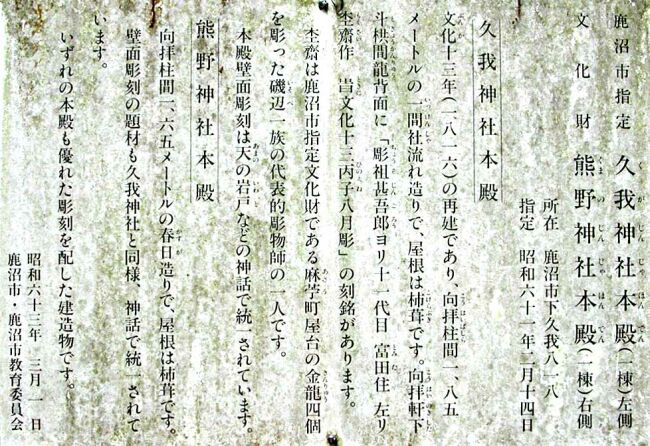 鹿沼市指定 久我神社本殿(一棟)左側
文化財 熊野神社本殿(一棟)右側
所在 鹿沼市下久我八一八
指定 昭和六十一年二月十四日
久我神社本殿
文化十三年(一八一六)の再建であり、向拝柱間一、八五
メートルの一間社流れ造りで、屋根は杮葺です。向拝軒下
斗栱間龍背面に「彫祖甚吾郎ヨリ十一代目 富田住 左リ
杢齋作 旹文化十三丙子八月彫」の刻銘があります。
杢齋は鹿沼市指定文化財である麻苧町屋台の金龍四個
を彫った磯辺一族の代表的彫物師の一人です。
本殿壁面彫刻は天の岩戸などの神話で統一されています。
熊野神社本殿
向拝柱間一、六五メートルの春日造りで、屋根は杮葺です。
壁面彫刻の題材も久我神社と同様、神話で統一されて
います。
いずれの本殿も優れた彫刻を配した建造物です。
昭和六十三年 三月 一日
鹿沼市・鹿沼市教育委員会